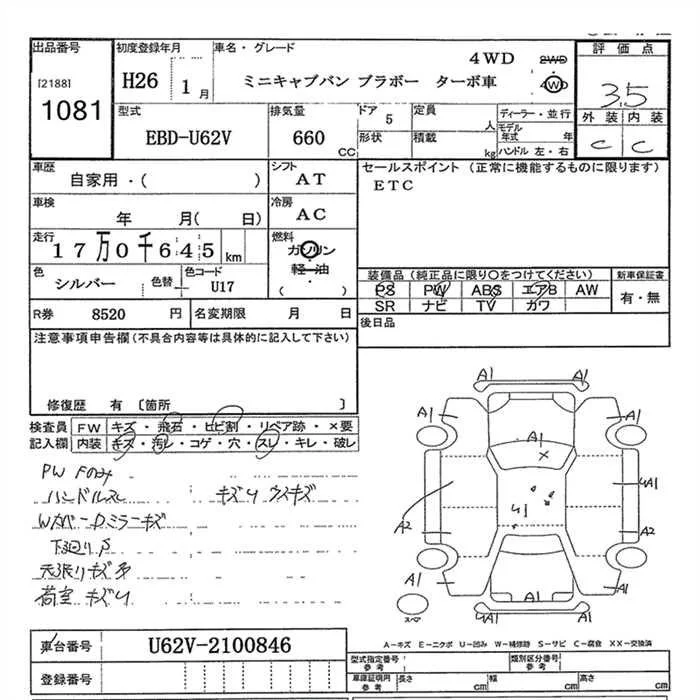 出品番号
[2188]
1081
初度登録年月
H26 1月
車名・グレード
4WD
ミニキャブバン ブラボー ターボ車
2WD
4WD
評価点
3.5
外装 内装
C C
型式
EBD-U62V
排気量
660 CC
ドア 5
形状
定員 人
積載 kg
ディーラー・並行
モデル年式 年
ハンドル 左・右
車歴
自家用・( )
シフト
AT
セールスポイント (正常に機能するものに限ります)
ETC
車検
年 月( 日)
冷房
AC
走行
17万0千645 km
燃料
ガソリン
軽・油
( )
色
シルバー
色替
色コード
U17
装備品 (純正品に限り○をつけてください)
PS PW ABS エアB AW
SR ナビ TV カワ
新車保証書
有・無
R券 8520 円
名変期限 月 日
後日品
注意事項申告欄 (不具合内容等は具体的に記入して下さい)
修復歴 有 [箇所 ]
検査員記入欄
FW キズ・飛石・ヒビ割・リペア跡・×要
内装 キズ・汚レ・コゲ・穴・スレ・キレ・破レ
PW Fのみ
ハンドルスレ
キズリ ウスキズ
Wカバー Dミラーキズ
下廻りS
天張りキズ
荷室 キズリ
A1 A1
A1 A1
A1
U1
UA1
A2 A2
A1 A1
スペア
UA1 A1
A-キズ E-エクボ U-凹み W-補修跡 S-サビ C-腐食 XX-交換済
車台番号
U62V-2100846
登録番号
型式指定番号
参考
類別区分番号
参考
車庫証明用
参考
長さ cm
幅 cm
高さ cm